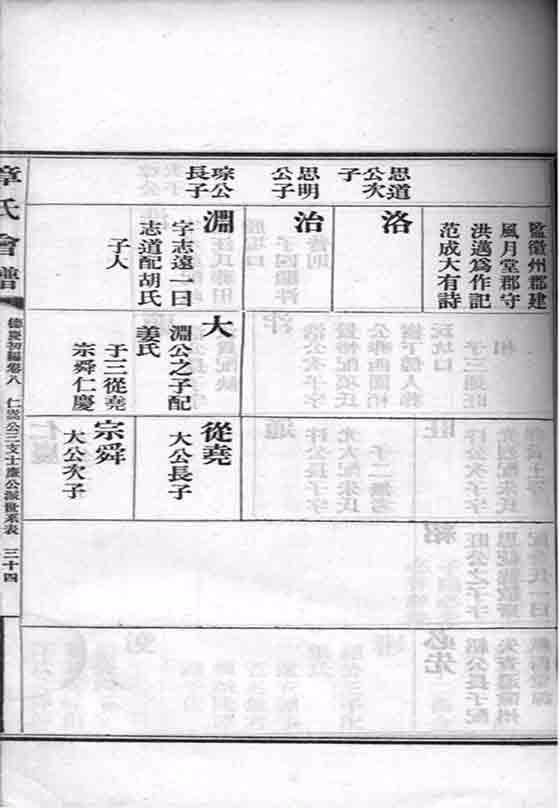 思道
公次
子
思明
公子
琮公
長子
監徽州郡建
風月堂郡守
洪邁爲作記
范成大有詩
洛
治
淵
字志遠一曰
志道配胡氏
子人
大
淵公之子配
姜氏
于三從堯
宗舜仁慶
從堯
大公長子
宗舜
大公次子
章氏會譜
德慶初編卷八
公三支士廉公派世系表
三十四